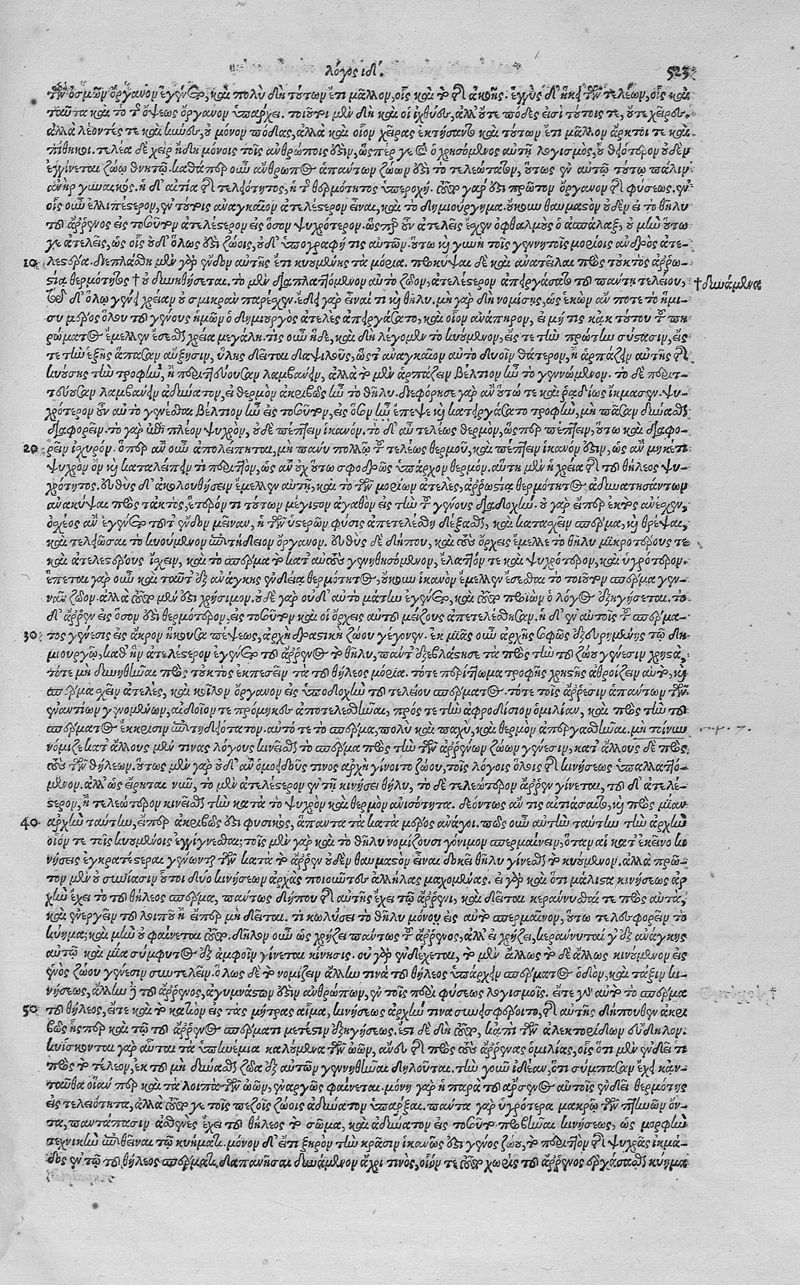 λόγος ιδ'. 523
τῶν ὀσμῶν ὄργανον ἐγένετο, καὶ πολὺ δὴ τούτων ἔτι μᾶλλον, οἷς καὶ τὸ τῆς ἀκοῆς. ἐγγὺς δ' ἤκει τῶν τελέων, οἷς καὶ
ταῦτα καὶ τὸ τῆς ὄψεως ὄργανον ὑπάρχει. τοιοῦτοι μὲν δὴ καὶ οἱ ἰχθύες, ἀλλ' οὔτε πόδες εἰσὶ τούτοις τε, οὔτε χεῖρες.
ἀλλὰ λέοντές τε καὶ κύνες, οὐ μόνον πόδας, ἀλλὰ καὶ οἷον χεῖρας ἐκτήσαντο καὶ τούτων ἔτι μᾶλλον ἄρκτοι τε καὶ
πίθηκοι. τελέα δὲ χεὶρ ἤδη μόνοις τοῖς ἀνθρώποις ἐστὶν, ὥσπερ γε ὁ χρησόμενος αὐτῇ λογισμὸς, οὗ θειότερον οὐδὲν
ἐγγίνεται ζώῳ θνητῷ. καθάπερ οὖν ἄνθρωπος ἁπάντων ζώων ἐστὶ τὸ τελεώτατον, οὕτως ἐν αὐτῷ τούτῳ πάλιν
ἀνὴρ γυναικὸς. ἡ δ' αἰτία τῆς τελειότητος, ἡ τῆς θερμότητος ὑπεροχή. τοῦτο γάρ ἐστι πρῶτον ὄργανον τῆς φύσεως, ἐν
οἷς οὖν ἐλλιπέστερον, ἐν τούτοις ἀναγκαῖον ἀτελέστερον εἶναι, καὶ τὸ δημιούργημα. οὔκουν θαυμαστὸν οὐδὲν εἰ τὸ θῆλυ
τοῦ ἄρρενος εἰς τοσοῦτον ἀτελέστερον εἰς ὅσον ψυχρότερον. ὥσπερ οὖν ἀτελεῖς ἔχει ὀφθαλμοὺς ὁ ἀσπάλαξ, οὐ μὴν οὕτω
γε ἀτελεῖς, ὡς οἷς οὐδ' ὅλως ἐστὶ ζώοις, οὐδ' ὑπογραφή τις αὐτῶν. οὕτω καὶ γυνὴ τοῖς γεννητικοῖς μορίοις ἀνδρὸς ἀτε-
10 λεστέρα. διεπλάσθη μὲν γὰρ ἔνδον αὐτῆς ἔτι κυουμένης τὰ μόρια. προκύψαι δὲ καὶ ἀνατεῖλαι πρὸς τοὐκτὸς ἀῤῥω-
στίᾳ θερμότητος † οὐ δυνηθήσεται. τὸ μὲν διαπλαττόμενον αὐτὸ ζῶον, ἀτελέστερον ἀπειργάσατο τοῦ πάντη τελείου, † δυνάμενα
τῷ δ' ὅλῳ γένει χρείαν οὐ σμικρὰν παρέχεν. ἔδει γὰρ εἶναί τι καὶ θῆλυ. μὴ γὰρ δὴ νομίσῃς, ὡς ἑκὼν ἄν ποτε τὸ ἥμι-
συ μέρος ὅλου τοῦ γένους ἡμῶν ὁ δημιουργὸς ἀτελὲς ἀπειργάζετο, καὶ οἷον ἀνάπηρον, εἰ μή τις κᾀκ τούτου τοῦ πη-
ρώματος ἔμελλεν ἔσεσθαι χρεία μεγάλη. τίς οὖν ἥδε, καὶ δὴ λέγομεν τὸ κυούμενον, εἴς τε τὴν πρώτην σύστασιν, εἴς
τε τὴν ἑξῆς ἅπασαν αὔξησιν, ὕλης δεῖται δαψιλοῦς, ὥστ' ἀναγκαῖον αὐτὸ δυοῖν θάτερον, ἢ ἁρπάζειν αὐτῆς τῆς
κυούσης τὴν τροφὴν, ἢ περιττεύουσαν λαμβάνειν, ἀλλὰ τὸ μὲν ἁρπάζειν βέλτιον ἦν τὸ γεννώμενον. τὸ δὲ περιτ-
τεύουσαν λαμβάνειν ἀδύνατον, εἰ θερμὸν ἀκριβῶς ἦν τὸ θῆλυ. διεφόρησε γὰρ ἂν οὕτω τε καὶ ῥᾳδίως ἰκμασεν. ψυ-
χρότερον οὖν αὐτὸ γενέσθαι βέλτιον ἦν εἰς τοσοῦτον, εἰς ὅσον ἔπεψε καὶ κατειργάζετο τροφὴν, μὴ πᾶσαν δύνασθαι
διαφορεῖν. τὸ γὰρ ἐπὶ πλέον ψυχρὸν, οὐδὲ πέττειν ἱκανόν. τὸ δ' αὖ τελέως θερμὸν, ὥσπερ πέττειν, οὕτω καὶ διαφο-
20 ρεῖν ἰσχυρόν. ὅπερ ἂν οὖν ἀπολείπηται, μὴ πάνυ πολλῷ τοῦ τελέως θερμοῦ, καὶ πέττειν ἱκανόν ἐστιν, ὡς ἂν μηκέτι
ψυχρὸν ὂν καὶ καταλείπειν τι περιττὸν, ὡς ἂν οὐχ οὕτω σφοδρῶς ὑπάρχον θερμόν. αὕτη μὲν ἡ χρεία τῆς τοῦ θήλεος ψυ-
χρότητος. εὐθὺς δ' ἀκολουθήσειν ἔμελλεν αὐτῇ, καὶ τὸ τῶν μορίων ἀτελὲς, ἀρρωστίᾳ θερμότητος ἀδυνατησάντων
ἀνακύψαι πρὸς τοὐκτὸς, ἕτερόν τι τούτων μέγιστον ἀγαθὸν εἰς τὴν τοῦ γένους διαδοχήν. ὃ γὰρ εἴπερ ἐκτὸς ἀνέσχεν,
ὄσχεος ἂν ἐγένετο τοῦτ' ἔνδον μεῖναν, ἡ τῶν ὑστερῶν φύσις ἀπετελέσθη δέξασθαι, καὶ κατασχεῖν σπέρμα, καὶ θρέψαι,
καὶ τελειῶσαι τὸ κυούμενον ἐπιτήδειον ὄργανον. εὐθὺς δὲ δήπου, καὶ τοὺς ὄρχεις ἔμελλε τὸ θῆλυ μικροτέρους τε
καὶ ἀτελεστέρους ἴσχειν, καὶ τὸ σπέρμα τὸ κατ' αὐτοὺς γεννηθησόμενον, ἔλαττόν τε καὶ ψυχρότερον, καὶ ὑγρότερον.
ἕπεται γὰρ οὖν καὶ ταῦτ' ἐξ ἀνάγκης ἐνδείᾳ θερμότητος, οὔκουν ἱκανὸν ἔμελλεν ἔσεσθαι τὸ τοιοῦτον σπέρμα γεν-
νᾶν ζῶον. ἀλλὰ μὲν ἐστὶ χρήσιμον. οὐδὲ γὰρ οὐδ' αὐτὸ μάτην ἐγένετο, καὶ τοῦτο προϊὼν ὁ λόγος ἐξηγήσεται. τὸ
δ' ἄρρεν εἰς ὅσον ἐστὶ θερμότερον, εἰς τοσοῦτον καὶ οἱ ὄρχεις αὐτοῦ μείζους ἀπετελέσθησαν. ἡ δ' ἐν αὐτοῖς τοῦ σπέρμα-
30 τος γένεσις εἰς ἄκρον ἥκουσα πέψεως, ἀρχὴ δραστικὴ ζώου γέγονεν. ἐκ μιᾶς οὖν ἀρχῆς σοφῶς ἐξευρημένης τῷ δη-
μιουργῷ, καθ' ἣν ἀτελέστερον ἐγένετο τοῦ ἄρρενος τὸ θῆλυ, πάντ' ἐξεβλάστησε τὰ πρὸς τὴν τοῦ ζώου γένεσιν χρηστά,
τό τε μὴ δυνηθῆναι πρὸς τοὐκτὸς ἐκπεσεῖν τὰ τοῦ θήλεος μόρια. τό τε περίττωμα τροφῆς χρηστῆς ἀθροίζειν αὐτὸ, καὶ
σπέρμα σχεῖν ἀτελὲς, καὶ κοῖλον ὄργανον εἰς ὑποδοχὴν τοῦ τελείου σπέρματος. τό τε τοῖς ἄρρεσιν ἁπάντων τῶν
ἐναντίων γενομένων, αἰδοῖόν τε πρόμηκες ἀποτελεσθῆναι, πρός τε τὴν ἀφροδίσιον ὁμιλίαν, καὶ πρὸς τὴν τοῦ
σπέρματος ἔκκρισιν ἐπιτηδειότατον. αὐτό τε τὸ σπέρμα, πολὺ καὶ παχὺ, καὶ θερμὸν ἀπεργασθῆναι. μὴ τοίνυν
νόμιζε κατ' ἄλλους μέν τινας λόγους κινεῖσθαι τὸ σπέρμα πρὸς τὴν τῶν ἀρρένων ζώων γένεσιν, κατ' ἄλλους δὲ πρὸς
τοὺς τῶν θηλέων, οὕτως μὲν γὰρ οὐδ' ἂν ὁμοειδοῦς τινος ἀρχὴ γίνοιτο ζώου, τοῖς λόγοις ὅλοις τῆς κινήσεως ὑπαλλαττό-
μενον. ἀλλ' ὡς εἴρηται νῦν, τὸ μὲν ἀτελέστερον ἐν τῇ κινήσει θῆλυ, τὸ δὲ τελεώτερον ἄρρεν γίνεται, τοῦ δ' ἀτελέ-
στερον, ἢ τελεώτερον κινεῖσθαι τὴν κατὰ τὸ ψυχρὸν καὶ θερμὸν ἀνισότητα. δεόντως ἄν τις αἰτιάσαιτο, καὶ πρὸς μίαν
40 ἀρχὴν ταύτην, εἴπερ ἀκριβῶς ἐστι φυσικὸς, ἅπαντα τὰ κατὰ μέρος ἀνάγοι. πῶς οὖν αὐτὴν ταύτην τὴν ἀρχὴν
οἷόν τε τοῖς κυουμένοις ἐγγίγνεσθαι; τοῖς μὲν γὰρ καὶ τὸ θῆλυ νομίζουσι γόνιμον σπερμαίνειν, ὅταν αἱ κατ' ἐκεῖνο κι-
νήσεις ἐγκρατέστεραι γένωνται τῶν κατὰ τὸ ἄρρεν οὐδὲν θαυμαστὸν εἶναι δοκεῖ θῆλυ γίνεσθαι τὸ κυούμενον. ἀλλὰ πρῶ-
τον μὲν οὐ συνίασιν οὗτοι δύο κινήσεων ἀρχὰς ποιοῦντες ἀλλήλαις μαχομένας. εἰ γὰρ καὶ ὅτι μάλιστα κινήσεως ἀρ-
χὴν ἔχει τὸ τοῦ θήλεος σπέρμα, πάντως δήπου τῆς αὐτῆς ἔχει τῷ ἄρρενι, καὶ δεῖται κεράννυσθαί τε πρὸς αὐτὰ,
καὶ ἐνεργεῖν τοῦ λοιποῦ ἢ εἴπερ μὴ δεῖται. τί κωλύσει τὸ θῆλυ μόνον εἰς αὑτὸ σπερμαῖνον, οὕτω τελεσφορεῖν τὸ
κύημα; καὶ μὴν οὐ φαίνεται τοῦτο. δῆλον οὖν ὡς χρῄζει πάντως τοῦ ἄρρενος, ἀλλ' εἰ χρῄζει, κεράννυταί γ' ἐξ ἀνάγκης
αὐτῷ καὶ μία σύμφυτος ἐξ ἀμφοῖν γίνεται κίνησις. οὐ γὰρ ἐνδέχεται, τὸ μὲν ἄλλως τὸ δὲ ἄλλως κινούμενον εἰς
ἑνὸς ζώου γένεσιν συντελεῖν. ὅλως δὲ τὸ νομίζειν ἄλλην τινὰ τοῦ θήλεος ὑπάρχειν σπέρματος ὁδὸν, καὶ τάξιν κι-
νήσεως, ἄλλην ἢ τοῦ ἄρρενος, ἀγυμνάστων ἐστὶν ἀνθρώπων, ἐν τοῖς περὶ φύσεως λογισμοῖς. εἴτε γ' ἐν αὐτὸ τὸ σπέρμα
50 τοῦ θήλεος, εἴτε καὶ τὸ κατιὸν εἰς τὰς μήτρας αἷμα, κινήσεως ἀρχήν τινα συνεισφέροιτο, τῆς αὐτῆς δήπουθεν ἀκρι-
βῶς ἧσπερ καὶ τῷ τοῦ ἄρρενος σπέρματι μέτεστιν ἐξηγήσεως. ἔτι δὲ δὴ τοῦτο, κᾀπὶ τῶν ἀλεκτορίδων εὔδηλον.
κυΐσκονται γὰρ αὗται τὰ ὑπηνέμια καλούμενα τῶν ὠῶν, ἄνευ τῆς πρὸς τοὺς ἄρρενας ὁμιλίας, οἷς ὅτι μὲν ἐνδεῖ τι
πρὸς τὸ τέλεον, ἐκ τοῦ μὴ δύνασθαι ζῶα ἐξ αὐτῶν γεννηθῆναι δηλοῦται. τὴν γοῦν ἰδέαν, ὅτι σύμπασαν ἔχει κἀν-
ταῦθα οἵαν περ καὶ τὰ λοιπὰ τῶν ὠῶν, ἐναργῶς φαίνεται. μόνη γὰρ ἡ παρὰ τοῦ ἄρρενος αὐτοῖς ἐνδεῖ θερμότης
εἰς τελειότητα, ἀλλὰ τοῦτό γε τοῖς πεζοῖς ζώοις ἀδύνατον ὑπάρξαι. πάντα γὰρ ὑγρότερα μακρῷ τῶν πτηνῶν ὄν-
τα, παντάπασιν ἀσθενὲς ἔχει τοῦ θήλεος τὸ σῶμα, καὶ ἀδύνατον εἰς τοσοῦτον προσβῆναι κινήσεως, ὡς μορφὴν
τεχνικὴν ἐπιθεῖναι τῷ κυήματι. μόνον δ' ἔτι ξηρὸν τὴν κρᾶσιν ἱκανῶς ἐστι γένος ζώου, τὸ περιττὸν τῆς ψυχρᾶς ἰκμά-
δος ἐν τῷ τοῦ θήλεος σπέρματι, δαπανῆσαι δυνάμενον ἄχρι τινὸς, οἷόν τε τοῦτο χωρὶς τοῦ ἄρρενος ἐργάσασθαι κύημα